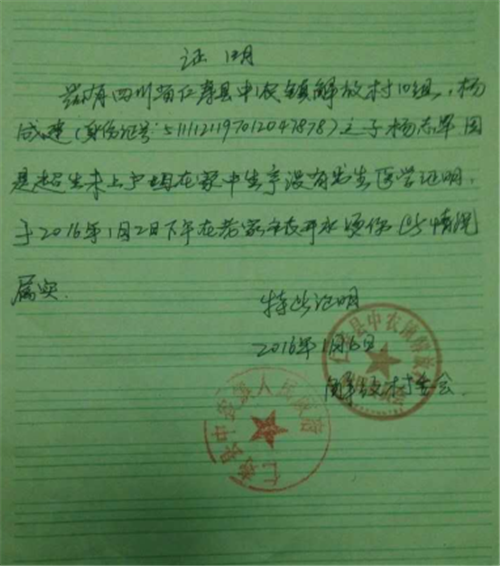 证明
兹有四川省仁寿县中农镇解放村10组,杨
成建(身份证号:5111121197012047878)之子杨志军因
是超生未上户口在家中生产没有出生医学证明,
于2016年1月2日下午在若家中衣开水烫伤 此情况
属实.
特此证明
2016年1月6日
解放村委会
仁寿县中农镇人民政府